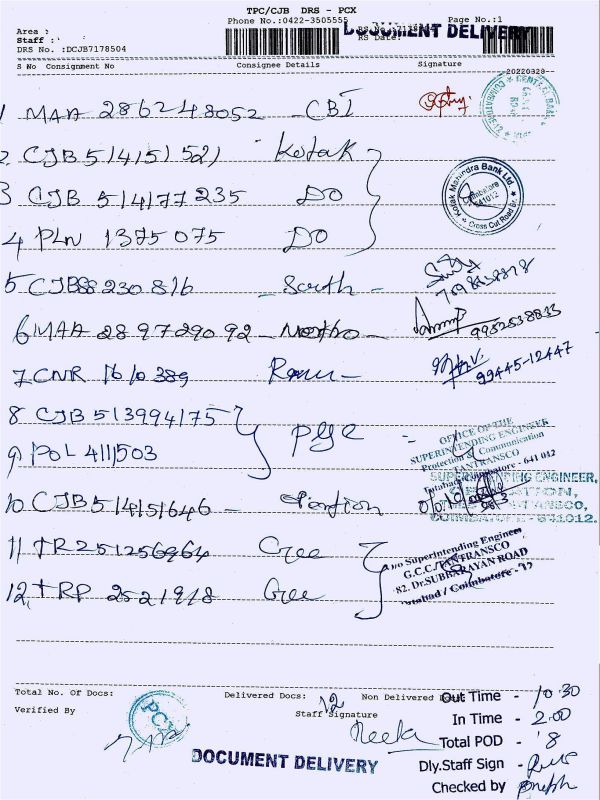 TPC/CJB DRS - PCX
Phone No.:0422-3505555 Page No.:1
DOCUMENT DELIVERY
Area :
Staff :
DRS No. :DCJB7178504 RS Date:
S No Consignment No Consignee Details Signature
20220328
1 MAA 286248052 - CBI
2. CJB 514151521 Kotak
3 CJB 514177235 DO
4 PLN 1375075 DO
Kotak Mahindra Bank Ltd.
Coimbatore
641012
Cross Cut Road Br.
5 CJB 88230816 - South -
6 MAA 289729092
99828 38833
7 CNR 1610389
99445-12447
8 CJB 513994175
9) POL 4111503
OFFICE OF THE
SUPERINTENDING ENGINEER
Protection & Communication
TANTRANSCO
Tatabad, Coimbatore - 641 012
SUPERINTENDING ENGINEER,
TANTRANSCO,
COIMBATORE - 641012.
10 CJB 514151646 -
11) TR 251256964 Gcc
O/o Superintending Engineer
G.C.C/TANTRANSCO
82, Dr.SUBBARAYAN ROAD
Tatabad / Coimbatore - 12
12, TRP 2521918 Gcc
Total No. Of Docs: Delivered Docs: 12 Non Delivered
Verified By Staff Signature
PCX
Neela
DOCUMENT DELIVERY
Out Time - 10.30
In Time - 2.00
Total POD - 8
Dly.Staff Sign -
Checked by